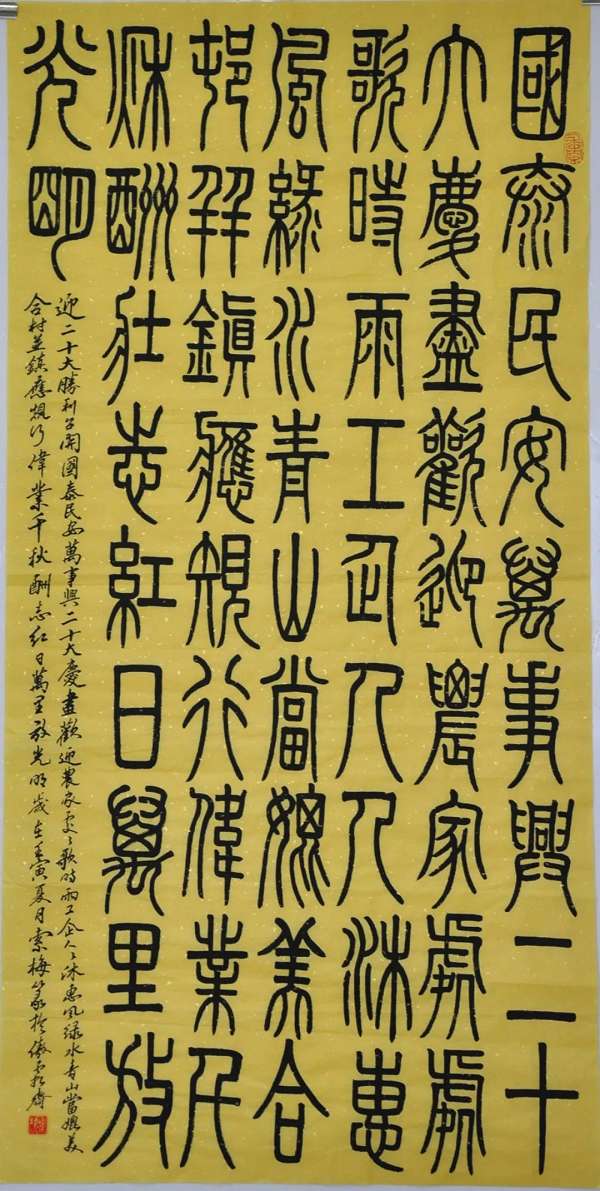 國泰民安萬事興二十
大慶盡歡迎農家處處
歌時雨工企人人沐惠
風綠水青山當媲美合
邨并鎮應規行偉業千
秌酬壯志紅日萬里放
光明
迎二十大勝利召開國泰民安萬事興二十大慶盡歡迎農家處々歌時雨工企人々沐惠風綠水青山當媲美
合村並鎮應規行偉業千秋酬志紅日萬里放光明歲在壬寅夏月索梅篆於傲霜齋